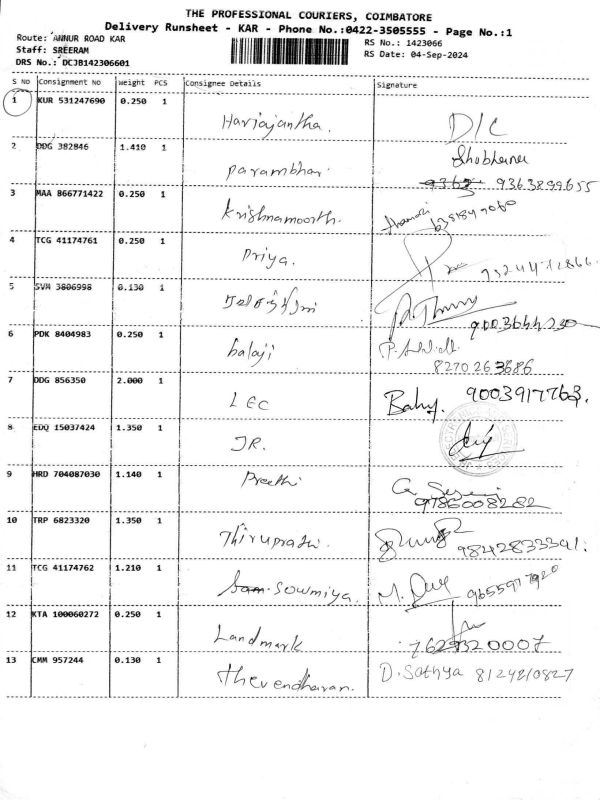 THE PROFESSIONAL COURIERS, COIMBATORE
Delivery Runsheet - KAR - Phone No.:0422-3505555 - Page No.:1
Route: ANNUR ROAD KAR
RS No.: 1423066
Staff: SREERAM
RS Date: 04-Sep-2024
DRS No.: DCJB142306601
S No Consignment No Weight PCS Consignee Details Signature
1 KUR 531247690 0.250 1
Harjajantha. D/C
2 DDG 382846 1.410 1 Shobhana
Parambhar. 9363 9363899655
3 MAA 866771422 0.250 1
Krishnamoorth.
4 TCG 41174761 0.250 1
Priya.
5 SVM 3806998 0.130 1
9003644230
6 PDK 8404983 0.250 1
balaji 8270263686
7 DDG 856350 2.000 1
LEC Baby. 9003917763.
8 EDQ 15037424 1.350 1
JR.
9 HRD 704087030 1.140 1
Preethi 9786008282
10 TRP 6823320 1.350 1
Thiruprathi. 9842833341.
11 TCG 41174762 1.210 1
Sowmiya. M. 9655977920
12 KTA 100060272 0.250 1
Landmark 7629320007
13 CMM 957244 0.130 1 D. Sathya 8124210827
Thevendharan.